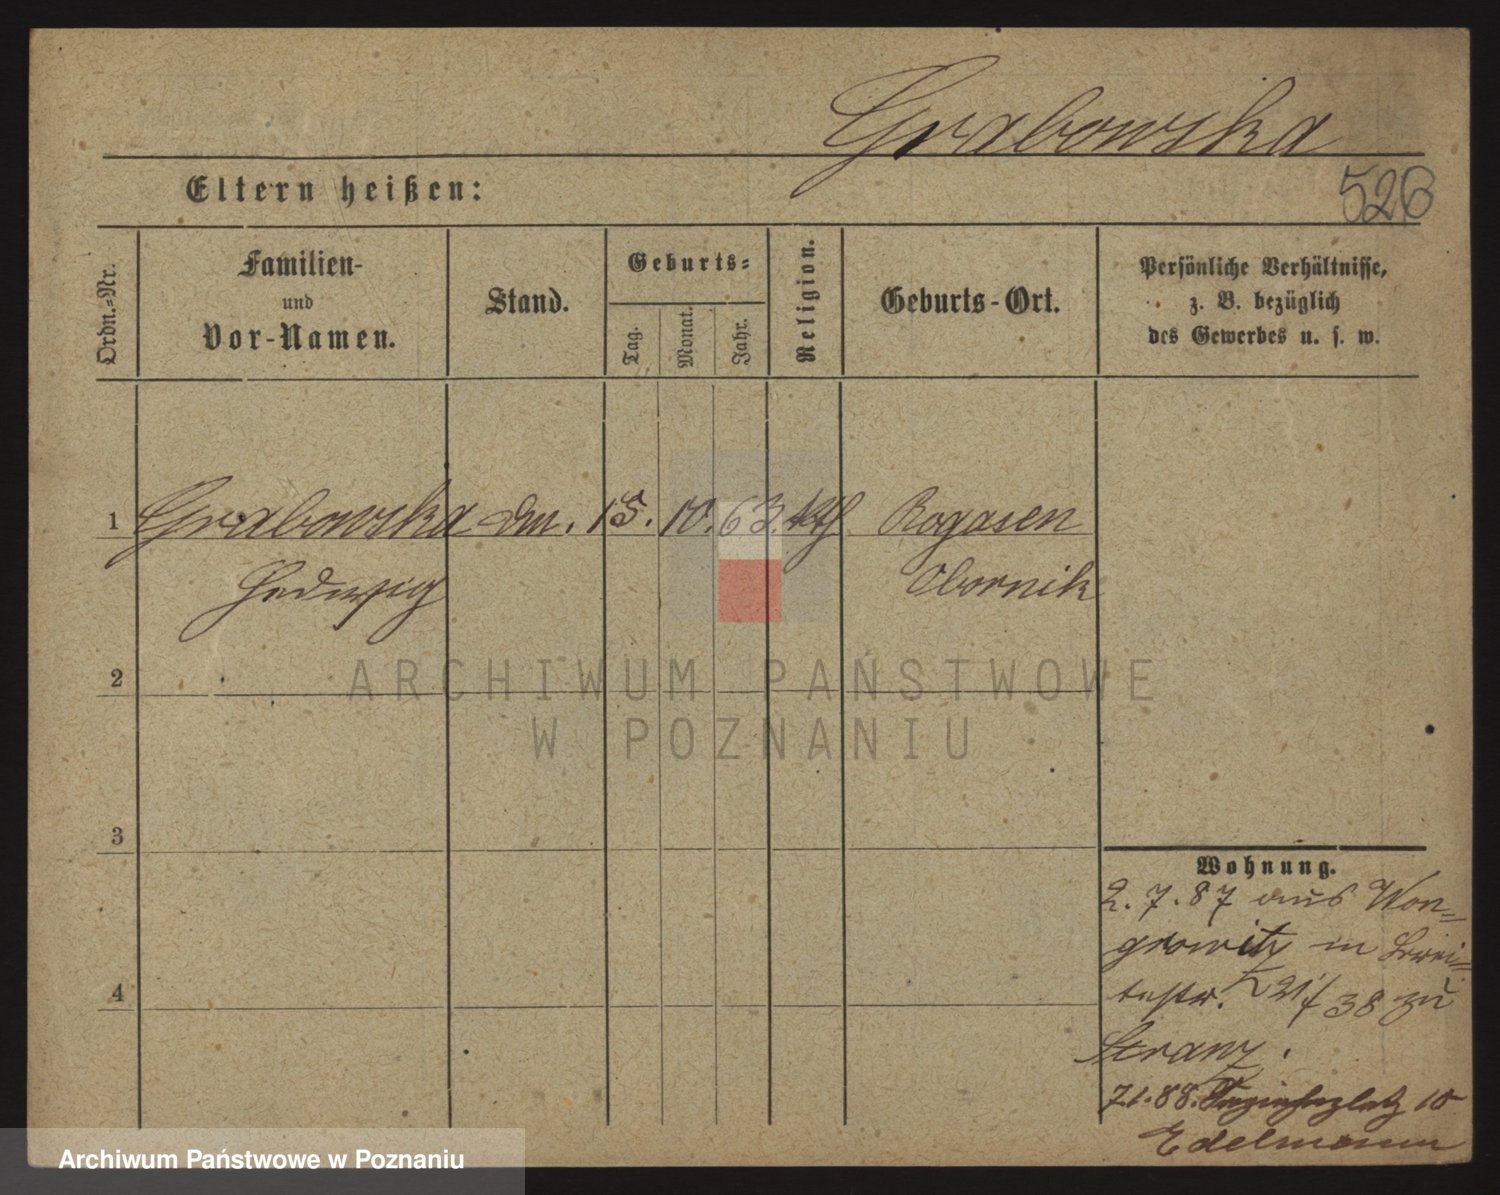 Grabowska
Eltern heißen:
526
Ordn.-Nr.
Familien-
und
Vor-Namen.
Stand.
Geburts-
Tag.
Monat.
Jahr.
Religion.
Geburts-Ort.
Persönliche Verhältnisse,
z. B. bezüglich
des Gewerbes u. s. w.
1 Grabowska 15. 10. 63. kth Rogasen
Hedwig Obornik
2
3
4
Wohnung.
2. 7. 87 aus Won=
growitz in Brei=
testr. 38 zu
Stranz.
7.1.88. 10
Edelmann
ARCHIWUM PAŃSTWOWE
W POZNANIU
Archiwum Państwowe w Poznaniu